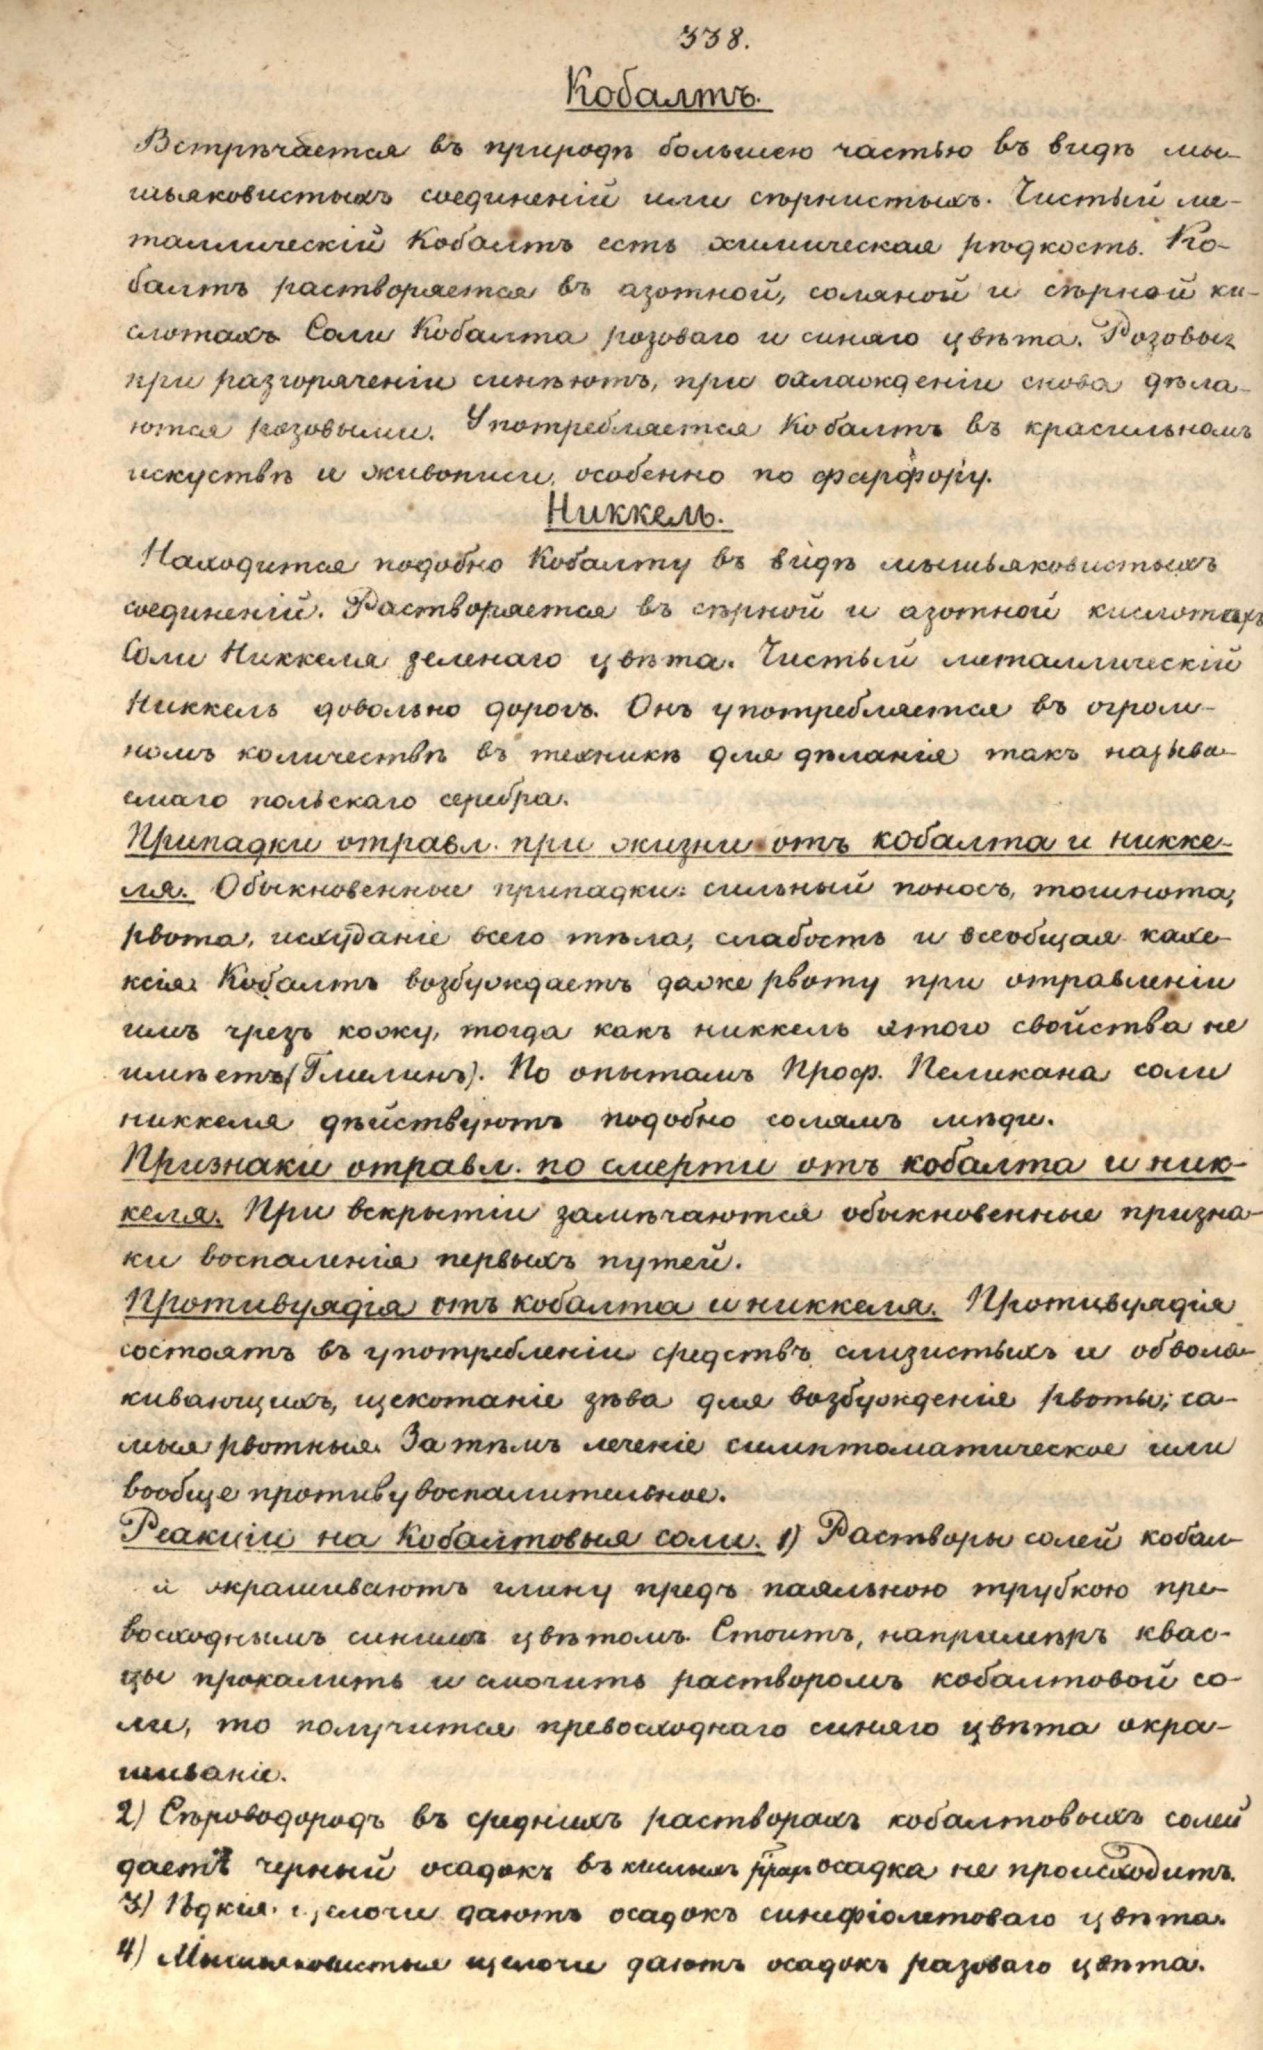 338.
Кобалтъ.
Встрѣчается въ природѣ большею частью въ видѣ мы-
шьяковистыхъ соединеній или сѣрнистыхъ. Чистый ме-
таллическій Кобалтъ есть химическая рѣдкость. Ко-
балтъ растворяется въ азотной, соляной и сѣрной ки-
слотахъ Соли Кобалта розоваго и синяго цвѣта. Розовыя
при разгоряченіи синѣютъ, при охлажденіи снова дѣла-
ются розовыми. Употребляется Кобалтъ въ красильномъ
искуствѣ и живописи, особенно по фарфору.
Никкель.
Находится подобно Кобалту въ видѣ мышьяковистыхъ
соединеній. Растворяется въ сѣрной и азотной кислотахъ
Соли Никкеля зеленаго цвѣта. Чистый металлическій
Никкель довольно дорогъ. Онъ употребляется въ огром-
номъ количествѣ въ техникѣ для дѣланія такъ называ-
емаго польскаго серебра.
Припадки отравл. при жизни отъ кобалта и никке-
ля. Обыкновенные припадки: сильный поносъ, тошнота,
рвота, исхуданіе всего тѣла, слабость и всеобщая кахе-
ксія. Кобалтъ возбуждаетъ даже рвоту при отравленіи
имъ чрезъ кожу, тогда какъ никкель этого свойства не
имѣетъ (Гмелинъ). По опытамъ Проф. Пеликана соли
никкеля дѣйствуютъ подобно солямъ мѣди.
Признаки отравл. по смерти отъ кобалта и ник-
келя. При вскрытіи замѣчаются обыкновенные призна-
ки воспаленія первыхъ путей.
Противуядія отъ кобалта и никкеля. Противуядія
состоятъ въ употребленіи средствъ слизистыхъ и обвола-
кивающихъ, щекотаніе зѣва для возбужденія рвоты; са-
мыя рвотныя. Затѣмъ леченіе симптоматическое или
вообще противувоспалительное.
Реакціи на Кобалтовыя соли. 1) Растворы солей кобал-
окрашиваютъ глину предъ паяльною трубкою пре-
восходнымъ синимъ цвѣтомъ. Стоитъ, напримѣръ квас-
цы прокалить и смочить растворомъ кобалтовой со-
ли, то получится превосходнаго синяго цвѣта окра-
шиваніе.
2) Сѣроводородъ въ среднихъ растворахъ кобалтовыхъ солей
даетъ черный осадокъ въ кислыхъ осадка не происходитъ.
3) Ѣдкія щелочи даютъ осадокъ синефіолетоваго цвѣта.
4) Мышьяковистыя щелочи даютъ осадокъ розоваго цвѣта.